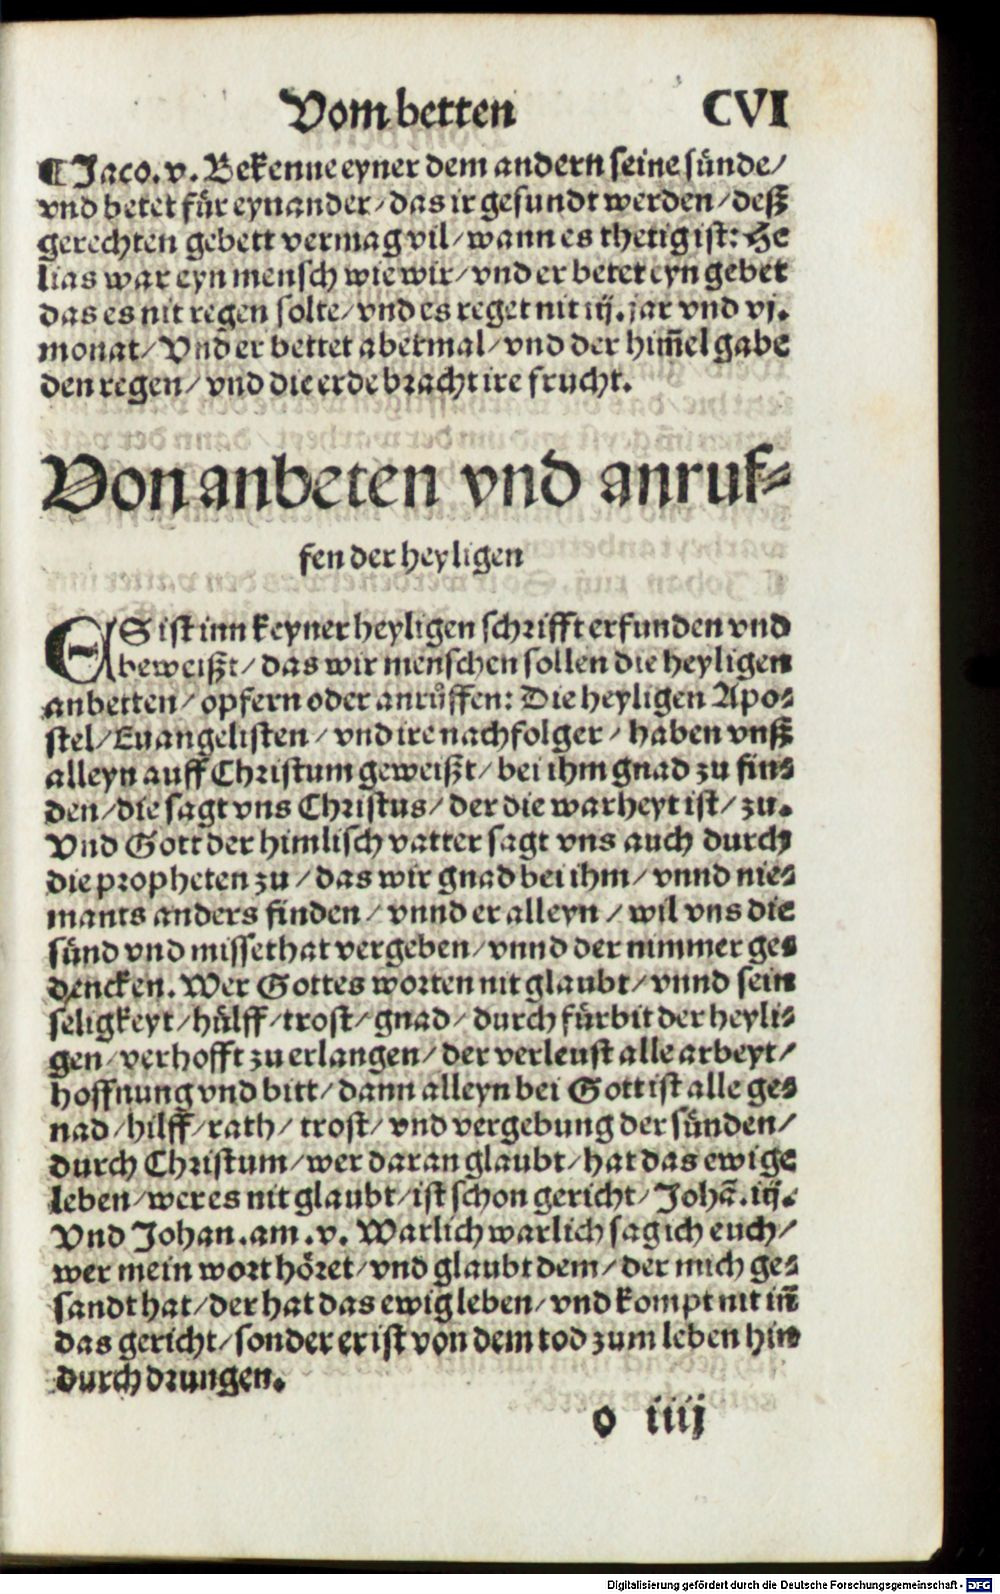 Vom betten CVI
¶ Jaco. v. Bekenne eyner dem andern seine sünde/
vnd betet für eynander/ das ir gesundt werden/ deß
gerechten gebett vermag vil/ wann es thetig ist: He
lias war eyn mensch wie wir/ vnd er betet eyn gebet
das es nit regen solte/ vnd es reget nit iij. jar vnd vj.
monat/ Vnd er bettet abermal/ vnd der him̄el gabe
den regen/ vnd die erde bracht ire frucht.
Von anbeten vnd anruf⸗
fen der heyligen
ES ist inn keyner heyligen schrifft erfunden vnd
beweißt/ das wir menschen sollen die heyligen
anbetten/ opfern oder anrůffen: Die heyligen Apo⸗
stel/ Euangelisten/ vnd ire nachfolger/ haben vnß
alleyn auff Christum geweißt/ bei ihm gnad zu fin⸗
den/ die sagt vns Christus/ der die warheyt ist/ zu.
Vnd Gott der himlisch vatter sagt vns auch durch
die propheten zu/ das wir gnad bei ihm/ vnnd nie⸗
mants anders finden/ vnnd er alleyn/ wil vns die
sünd vnd missethat vergeben/ vnnd der nimmer ge⸗
dencken. Wer Gottes worten nit glaubt/ vnnd sein
seligkeyt/ hülff/ trost/ gnad/ durch fürbit der heyli⸗
gen/ verhofft zu erlangen/ der verleust alle arbeyt/
hoffnung vnd bitt/ dann alleyn bei Gott ist alle ge⸗
nad/ hilff/ rath/ trost/ vnd vergebung der sünden/
durch Christum/ wer daran glaubt/ hat das ewige
leben/ wer es nit glaubt/ ist schon gericht/ Johā. iij.
Vnd Johan. am .v. Warlich warlich sag ich euch/
wer mein wort höret/ vnd glaubt dem/ der mich ge⸗
sandt hat/ der hat das ewig leben/ vnd kompt nit in̄
das gericht/ sonder er ist von dem tod zum leben hin
durch drungen.
o iiij
Digitalisierung gefördert durch die Deutsche Forschungsgemeinschaft - DFG